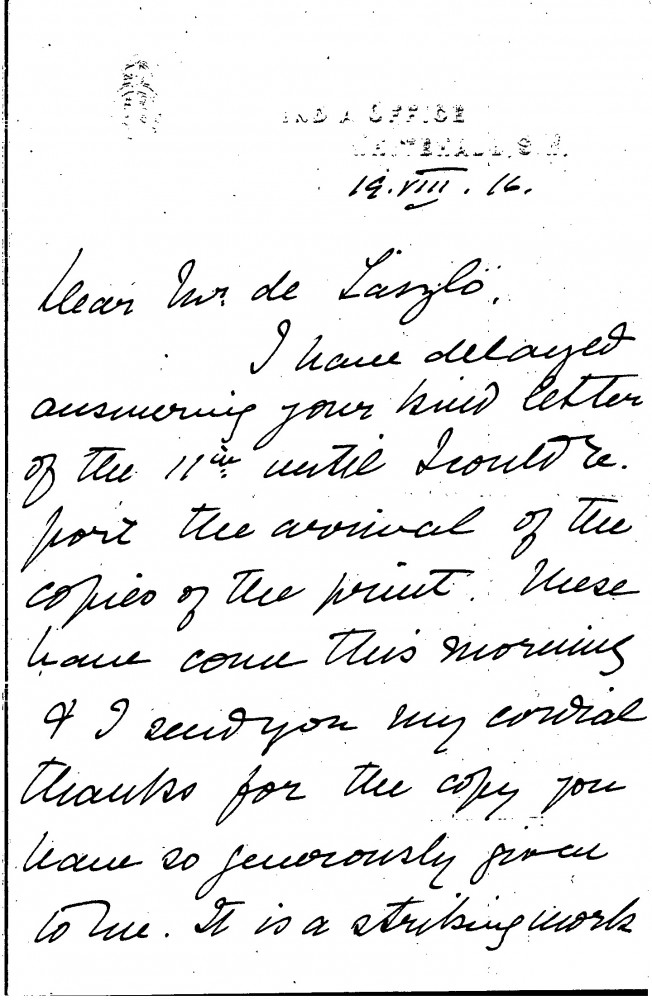 INDIA OFFICE
WHITEHALL, S.W.
19.VIII.16.
Dear Mr. de László,
I have delayed
answering your kind letter
of the 11th until I could re-
port the arrival of the
copies of the print. These
have come this morning
& I send you my cordial
thanks for the copy you
have so generously given
to me. It is a striking work